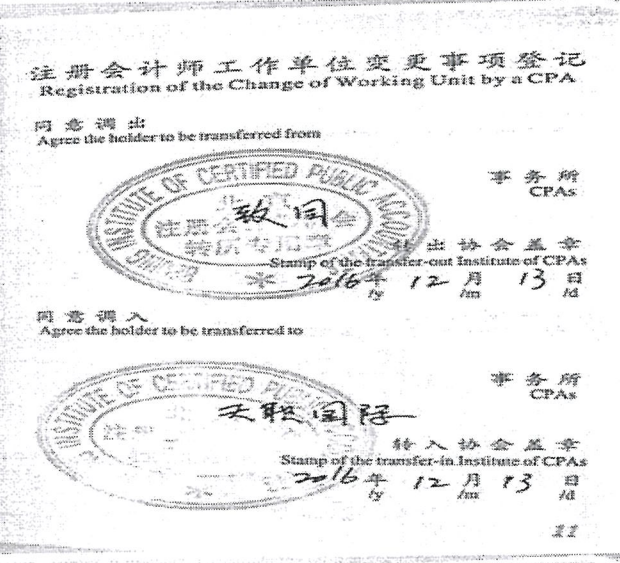 注册会计师工作单位变更事项登记
Registration of the Change of Working Unit by a CPA
同意调出
Agree the holder to be transferred from
INSTITUTE OF CERTIFIED PUBLIC ACCOUNTANTS
北京
注册会计师协会
转所专用章
致同
事务所
CPAs
转出协会盖章
Stamp of the transfer-out Institute of CPAs
2016年 12月 13日
/y /m /d
同意调入
Agree the holder to be transferred to
INSTITUTE OF CERTIFIED PUBLIC
天职国际
事务所
CPAs
转入协会盖章
Stamp of the transfer-in Institute of CPAs
2016年 12月 13日
/y /m /d
11